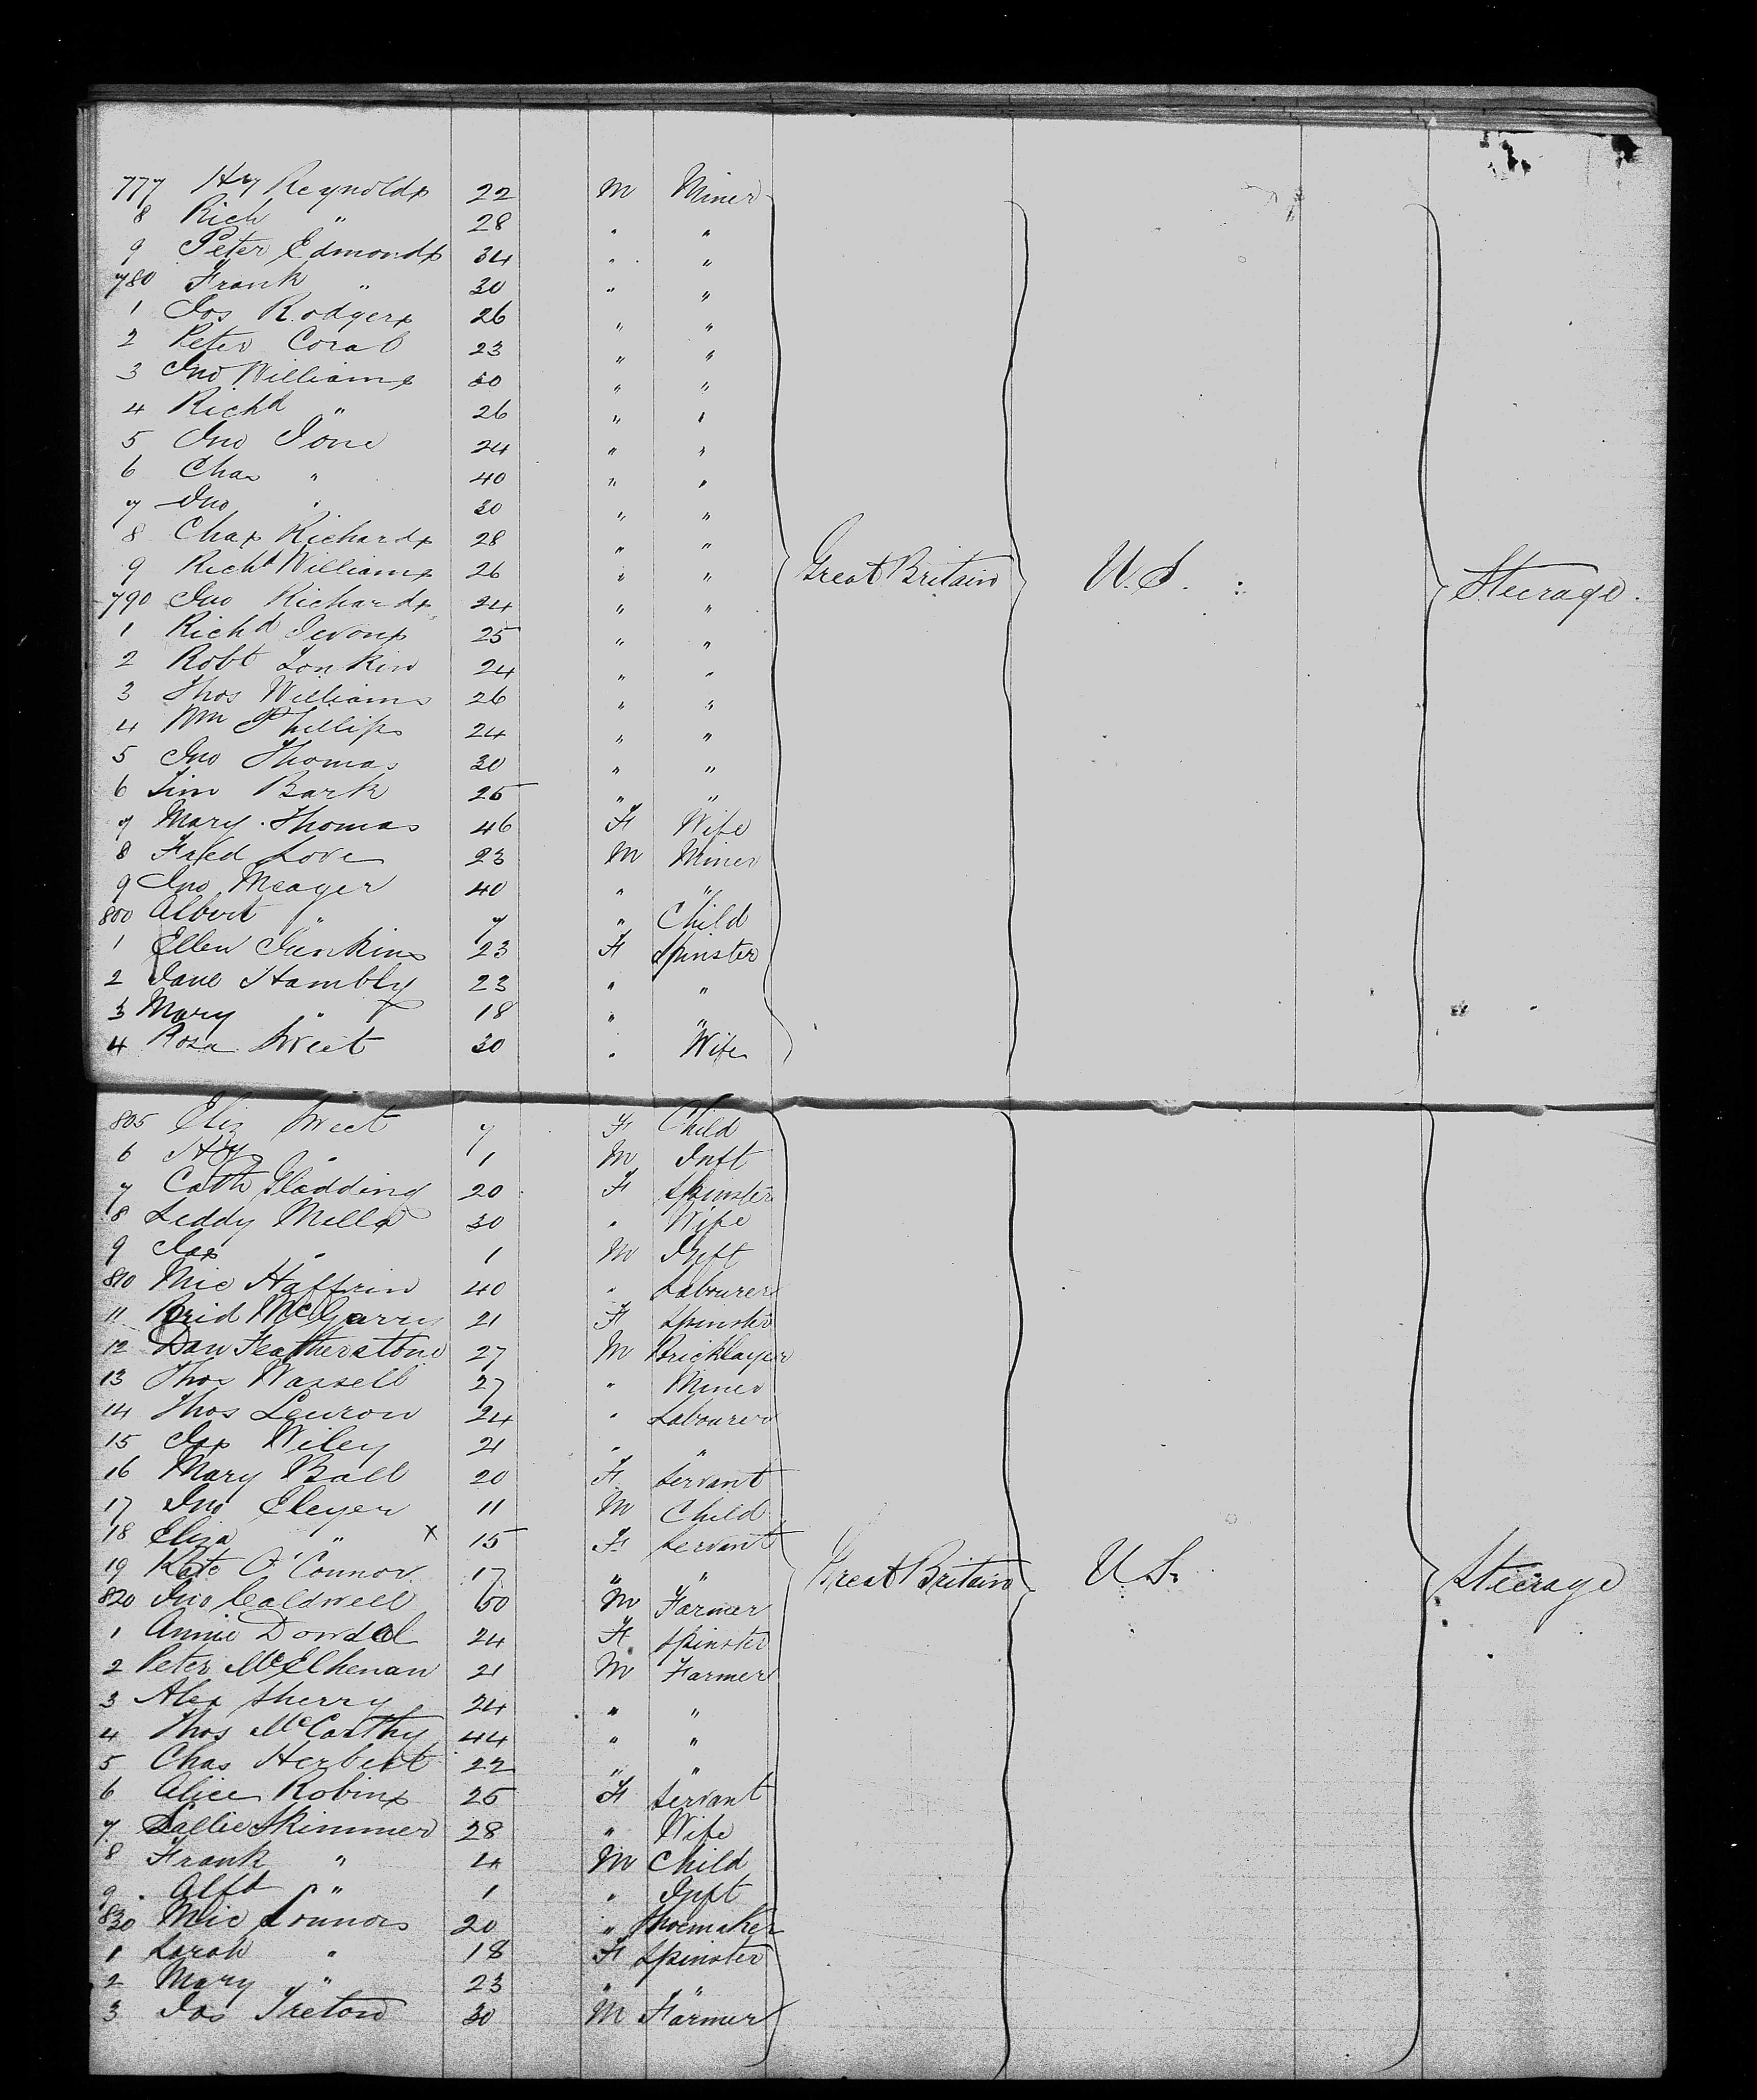 777 Hry Reynolds 22 M Miner
8 Rich " 28 " "
9 Peter Edmonds 34 " "
780 Frank " 30 " "
1 Jos Rodgers 26 " "
2 Peter 23 " "
3 Jno Williams " "
4 Richd " 26 " "
5 Jno 24 " "
6 Chas " 40 " "
7 Jno " 30 " "
8 Chas Richards 28 " "
9 Richd Williams 26 " "
Great Britain U.S. Steerage.
790 Jno Richards 24 " "
1 Richd 25 " "
2 Robt 24 " "
3 Thos Williams 26 " "
4 Wm Phillips 24 " "
5 Jno Thomas 30 " "
6 Bark 25 " "
7 Mary Thomas 46 F Wife
8 Fred Love 23 M Miner
9 Jno Meager 40 " "
800 Albert " 7 " Child
1 Ellen Junkins 23 F Spinster
2 Jane Hambly 23 " "
3 Mary " 18 " "
4 Rosa Sweet 30 " Wife
805 Eliz Sweet 7 F Child
6 Hry " 1 M Inft
7 Cath Gladding 20 F Spinster
8 Liddy Mills 30 " Wife
9 Jas " 1 M Inft
810 Mic 40 " Labourer
11 Brid 21 F Spinster
12 Dan Featherstone 27 M Bricklayer
13 Thos Wassell 27 " Miner
14 Thos 24 " Labourer
15 Jas Wiley 21 " "
16 Mary Ball 20 F Servant
17 Jno Cleyer 11 M Child
18 Eliza " x 15 F Servant
19 Kate O'Connor 17 " "
Great Britain U.S. Steerage
820 Jno Caldwell 50 M Farmer
1 Annie Dowdal 24 F Spinster
2 Peter McElhenan 21 M Farmer
3 Alex Sherry 24 " "
4 Thos McCarthy 44 " "
5 Chas Herbert 22 " "
6 Alice Robins 25 F Servant
7 Sallie Skinner 28 " Wife
8 Frank " 4 M Child
9 Alfd " 1 " Inft
830 Mic Connors 20 " Shoemaker
1 Sarah " 18 F Spinster
2 Mary " 23 " "
3 Jas Ireton 30 M Farmer